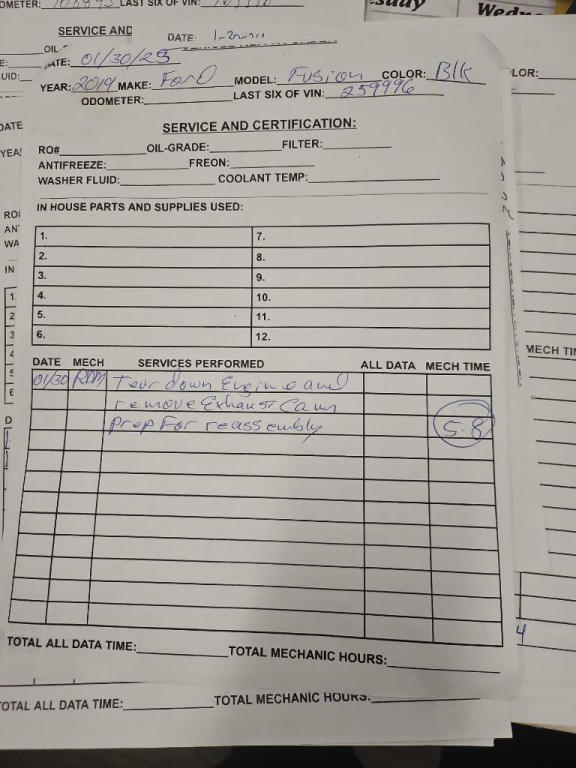 OMETER: LAST SIX OF VIN:
SERVICE AND
OIL- DATE:
UID:
DATE
YEA
RO
AN
WA
IN
1.
2
3
4
5
6
D
LOR:
MECH TIM
4
ATE: 01/30/25
YEAR: 2019 MAKE: Ford MODEL: Fusion COLOR: Blk
ODOMETER: LAST SIX OF VIN: 259996
SERVICE AND CERTIFICATION:
RO# OIL-GRADE: FILTER:
ANTIFREEZE: FREON:
WASHER FLUID: COOLANT TEMP:
IN HOUSE PARTS AND SUPPLIES USED:
1. 7.
2. 8.
3. 9.
4. 10.
5. 11.
6. 12.
DATE MECH SERVICES PERFORMED ALL DATA MECH TIME
01/30 RDM Tear down Engine and
remove Exhaust Cam
prep For reassembly 5.8
TOTAL ALL DATA TIME: TOTAL MECHANIC HOURS:
OTAL ALL DATA TIME: TOTAL MECHANIC HOURS: